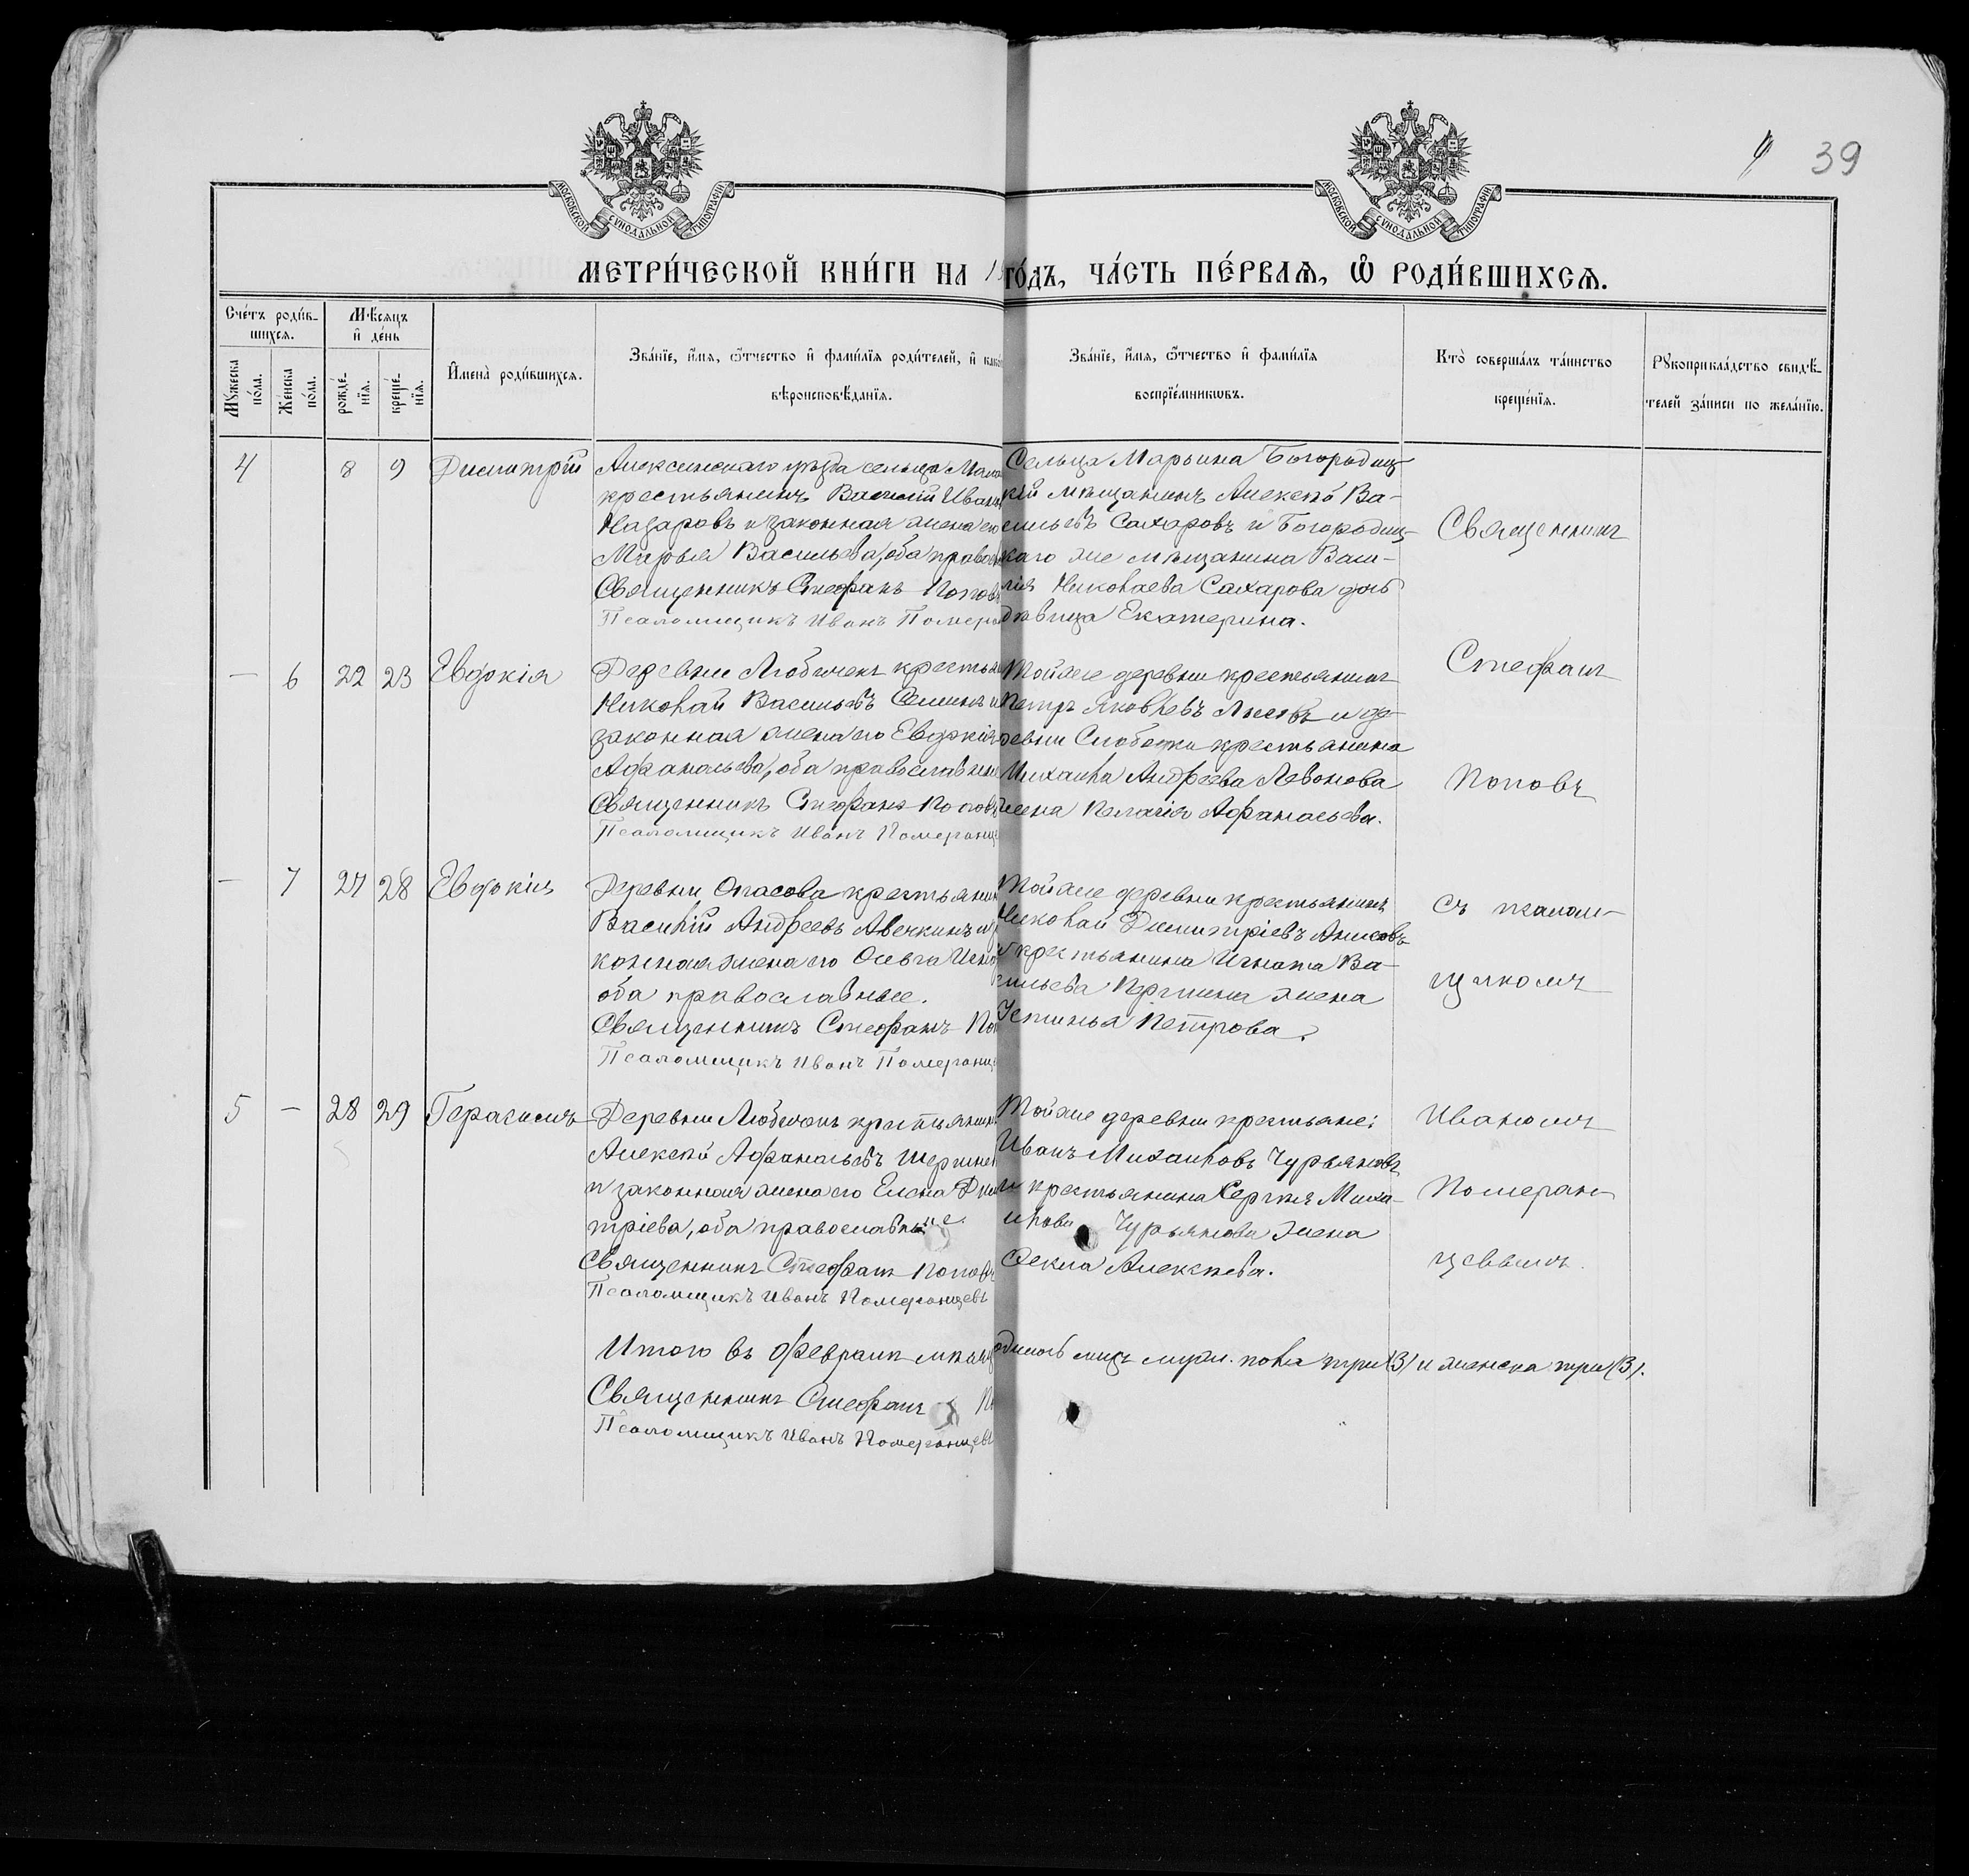 39
МОСКОВСКОЙ СѴНОДАЛЬНОЙ ТИПОГРАФІИ
МОСКОВСКОЙ СѴНОДАЛЬНОЙ ТИПОГРАФІИ
МЕТРИ́ЧЕСКОЙ КНИ́ГИ НА 1 ГО́ДЪ, ЧА́СТЬ ПЕ́РВАѦ, Ѡ҆ РОДИ́ВШИХСѦ.
Сче́тъ роди́в-
шихсѧ.
Мꙋ́жеска по́ла.
Же́нска по́ла.
Мѣ́сѧцъ
и҆ де́нь
рожде́-
нїѧ.
креще́-
нїѧ.
И҆мена̀ роди́вшихсѧ.
Зва́нїе, и҆́мѧ, ѻ҆́тчество и҆ фами́лїѧ роди́телей, и҆ како
вѣроисповѣ́данїѧ.
Зва́нїе, и҆́мѧ, ѻ҆́тчество и҆ фами́лїѧ
воспрїе́мникѡвъ.
Кто̀ соверша́лъ та́инство
креще́нїѧ.
Рꙋкоприкла́дство свидѣ́-
телей за́писи по жела́нїю.
4 8 9 Димитрій
Алексинскаго уѣзда сельца
крестьянинъ Василій Иван
Назаровъ и законная жена его
Марья Васильева, оба правосл
Священникъ Стефанъ Поповъ
Псаломщикъ Иванъ Помера
Сельца Марьина Богородиц-
кій мѣщанинъ Алексѣй Ва-
сильевъ Сахаровъ и Богородиц-
каго же мѣщанина Васи-
лія Николаева Сахарова дочь
дѣвица Екатерина.
Священникъ
— 6 22 23 Евдокія
Деревни Любичекъ крестьян
Николай Васильевъ Семинъ и
законная жена его Евдокія
Афанасьева, оба православные
Священникъ Стефанъ Поповъ
Псаломщикъ Иванъ Померанц
Той же деревни крестьянинъ
Петръ Яковлевъ и де-
ревни Слободки крестьянина
Михаила Андреева Левонова
жена Пелагія Афанасьева.
Стефанъ
Поповъ
— 7 27 28 Евдокія
Деревни Опасова крестьянин
Василій Андреевъ Авечкинъ и за
конная жена его Ольга Игна
оба православные.
Священникъ Стефанъ Поп
Псаломщикъ Иванъ Померанц
Той же деревни крестьянинъ
Николай Димитріевъ Анисовъ
и крестьянина Игната Ва-
сильева жена
Устинья Петрова.
съ псалом-
щикомъ
5 — 28 29 Герасимъ
Деревни Любичекъ крестьянин
Алексѣй Афанасьевъ
и законная жена его Елена Дми
тріева, оба православные.
Священникъ Стефанъ Поповъ
Псаломщикъ Иванъ Померанцевъ
Той же деревни крестьяне:
Иванъ Михаиловъ Чурьяновъ
и крестьянина Сергея Миха-
илова Чурьянова жена
Фекла Алексѣева.
Иваномъ
Померан-
цевымъ.
Итого въ февралѣ мѣсяц одилось лицъ муж. пола три (3) и женска три (3).
Священникъ Стефанъ По
Псаломщикъ Иванъ Померанцевъ